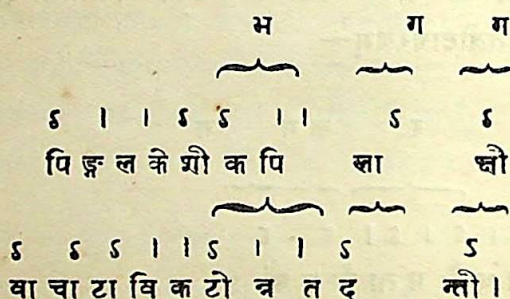 भ ग ग
ऽ । । ऽ ऽ । । ऽ ऽ
पि ङ्ग ल के शी क पि ला क्षी
ऽ ऽ ऽ । । ऽ । । ऽ ऽ
वा चा टा वि क टो न्न त द न्ती ।